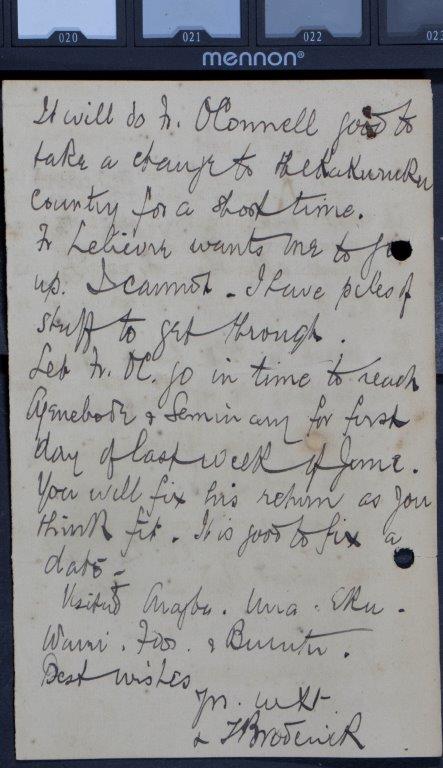 020 021 022 02
mennon®
It will do Fr. O'Connell good to
take a change to the Kukuruku
Country for a short time.
Fr Lelievre wants me to go
up. I cannot - I have piles of
stuff to get through.
Let Fr. OC. go in time to reach
Agenebode & Seminary for first
day of last week of June.
You will fix his return as you
think fit. It is good to fix a
date -
Visited Aragba. Uria. Eku -
Warri. &
Best wishes
Yrs. in Xt
+ T Broderick